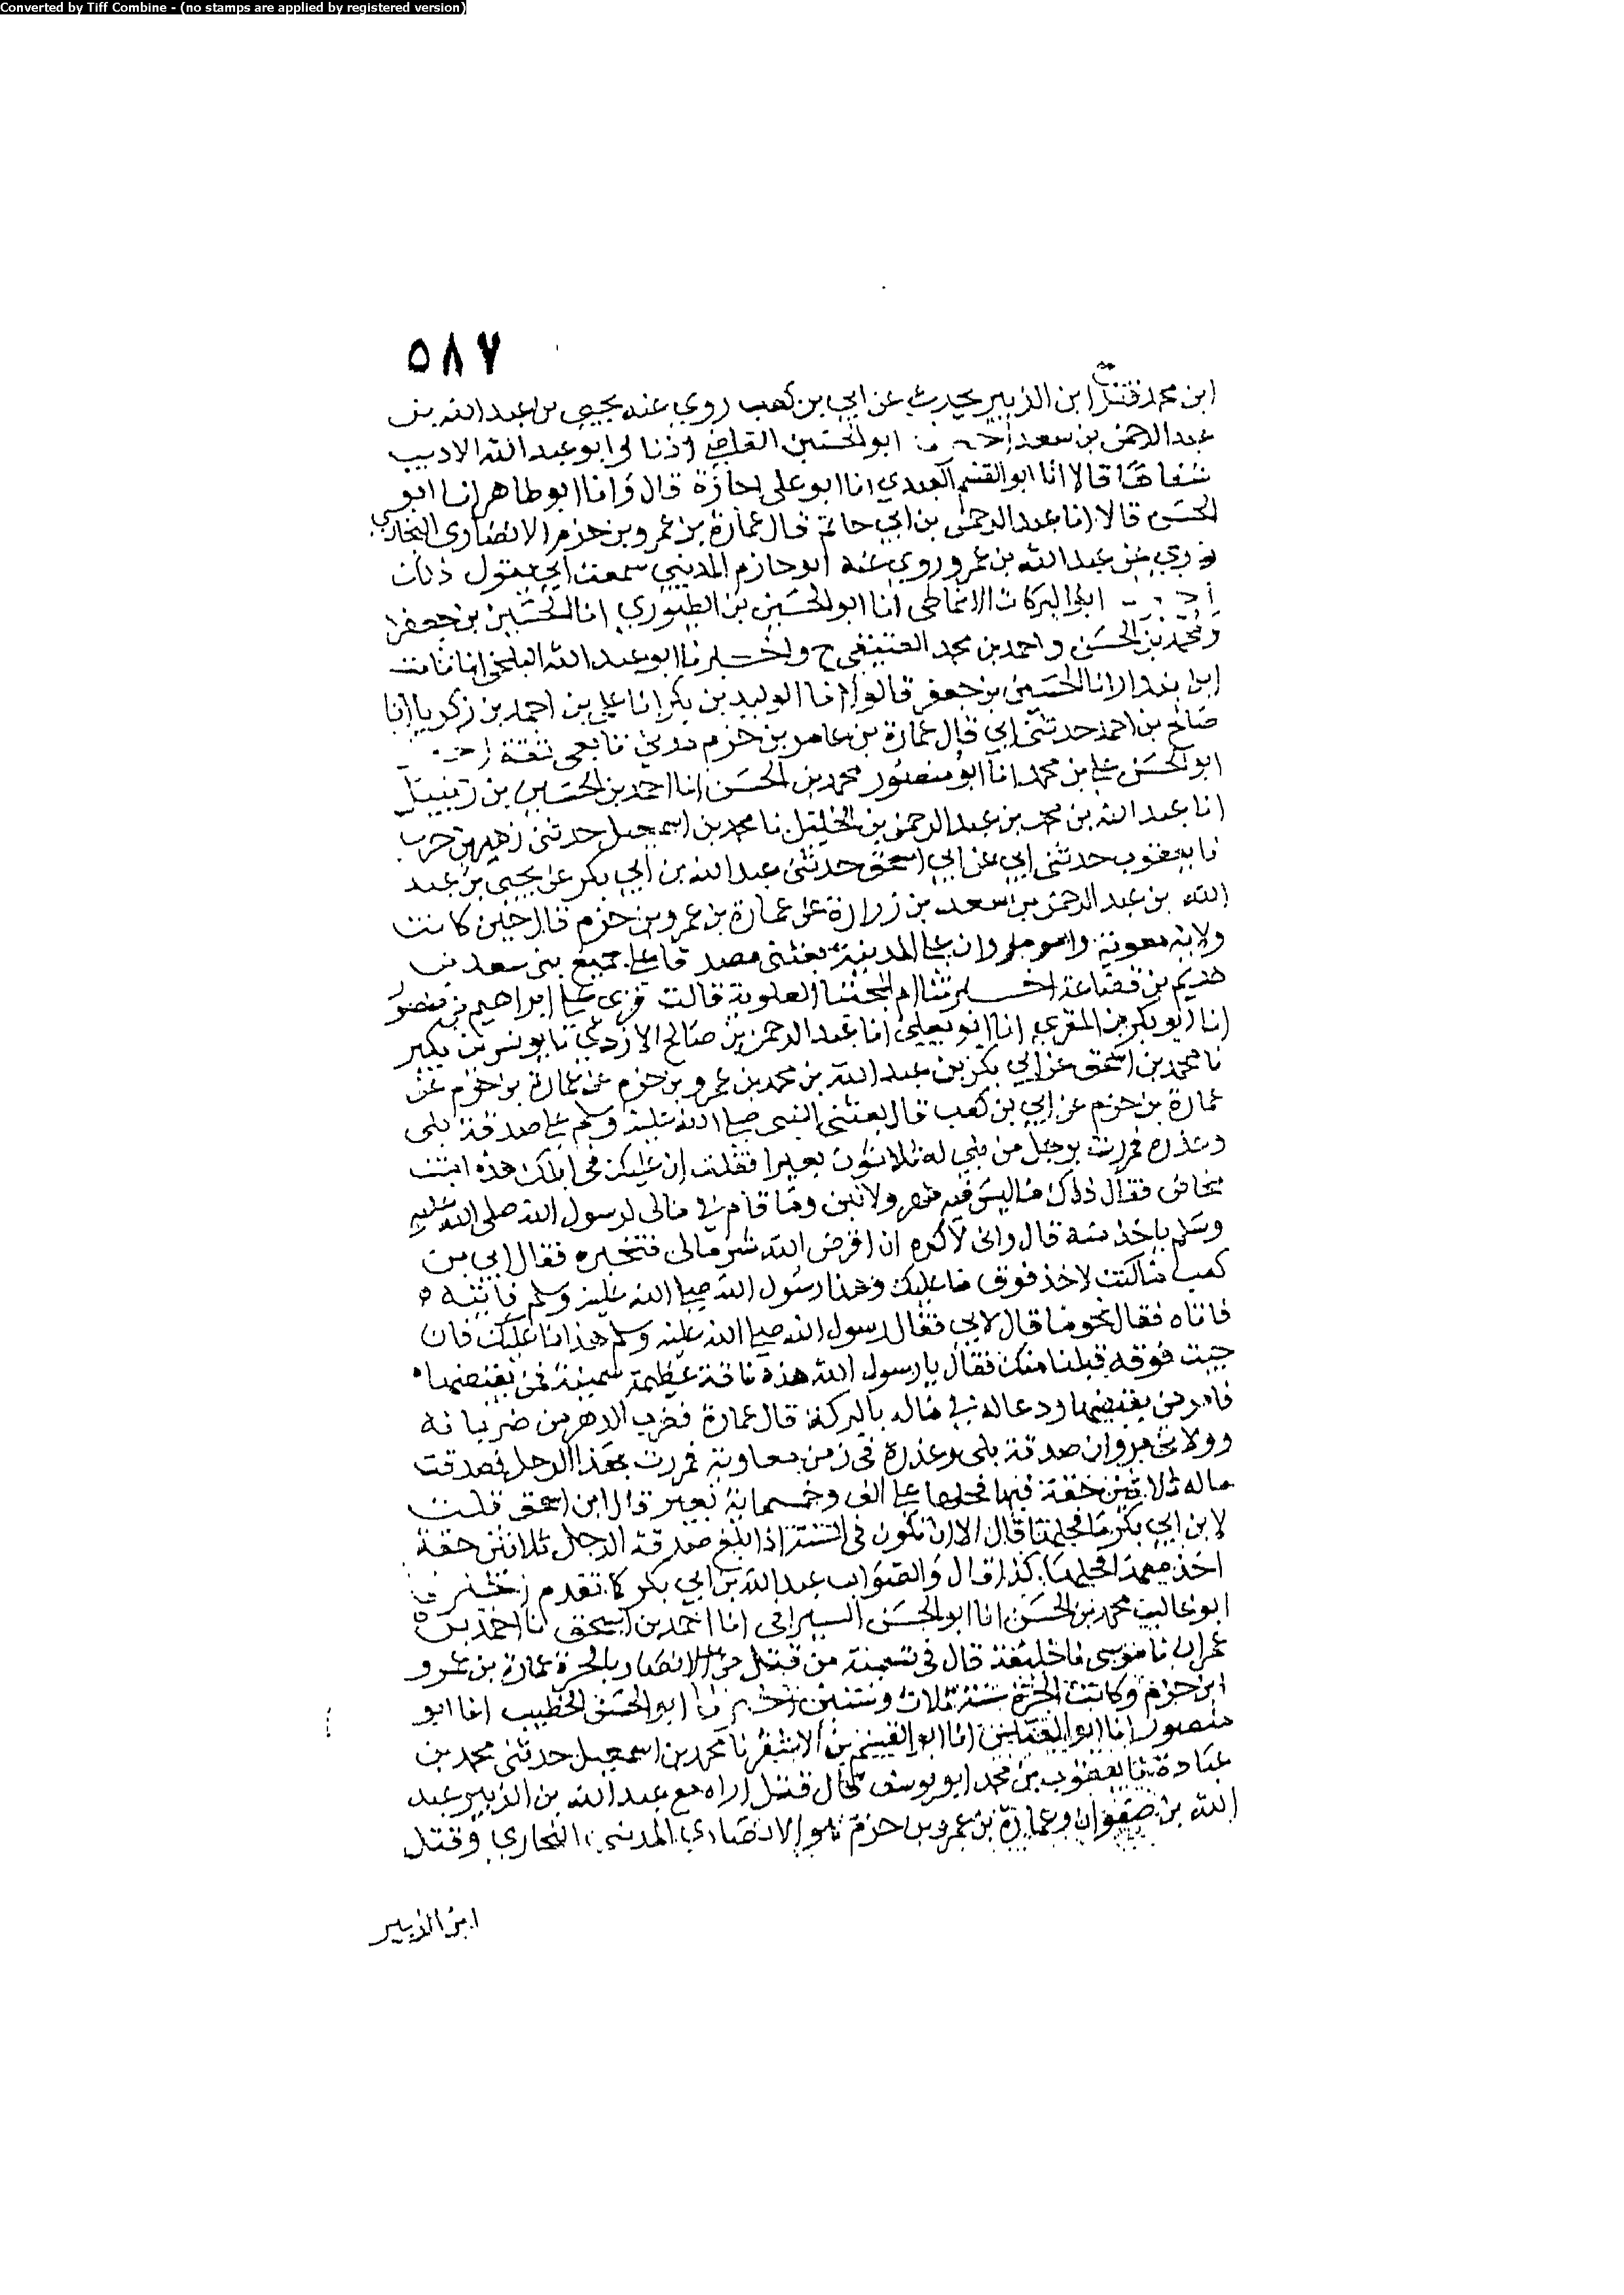 Converted by Tiff Combine - (no stamps are applied by registered version)
٥٨٧
ابن محمد فقتل ابن الزبير يحدث عن ابي بن كعب روي عنه يحيى بن عبد الله بن
عبد الرحمن بن سعد ابو الحسين القاضي اذنا وابو عبد الله الاديب
شفاها قالا انا ابو القسم العبدي انا ابو علي اجازة قال وانا ابو طاهر انا ابو
الحسن قالا انا عبد الرحمن بن ابي حاتم قال عمارة بن عمرو بن حزم الانصاري النجاري
روي عن عبد الله بن عمرو روي عنه ابو حازم المديني سمعت ابي يقول ذلك
ابو البركات الانماطي انا ابو الحسين بن الطيوري انا الحسين بن جعفر
ومحمد بن الحسن واحمد بن محمد العتيقي ح واخبرنا ابو عبد الله البلخي انا ثابت
ابن بندار انا الحسين بن جعفر قالوا انا الوليد بن بكر انا علي بن احمد بن زكريا انا
صالح بن احمد حدثني ابي قال عمارة بن عامر بن حزم مدني تابعي ثقة
ابو الحسن علي بن محمد انا ابو منصور محمد بن الحسن انا احمد بن الحسين بن زنبيل
انا عبد الله بن محمد بن عبد الرحمن بن الخليل نا محمد بن اسمعيل حدثني زهير بن حرب
نا يعقوب حدثني ابي عن ابي اسحق حدثني عبد الله بن ابي بكر عن يحيى بن عبد
الله بن عبد الرحمن بن اسعد بن زرارة عن عمارة بن عمرو بن حزم قال حين كانت
ولاية معوية وامر مروان على المدينة بعثني مصدقا على جميع بني سعد بن
هديم بن قضاعة اخبرتنا ام المجتبا العلوية قالت قرى على ابراهيم بن منصور
انا ابو بكر بن المقري انا ابو يعلى انا عبد الرحمن بن صالح الازدي نا يونس بن بكير
نا محمد بن اسحق عن ابي بكر بن عبد الله بن محمد بن عمرو بن حزم عن عمارة بن حزم عن
عمارة بن حزم عن ابي بن كعب قال بعثني النبي صلى الله عليه وسلم على صدقة بلى
وعذرة فمررت برجل من بلي له ثلاثون بعيرا فقلت ان عليك في ابلك هذه ابنت
مخاض فقال ذلك ما ليس فيه ظهر ولا لبن وما قام في مالي لرسول الله صلى الله عليه
وسلم ياخذ منه قال واني لاكره ان اقرض الله شر مالي فتخيره فقال ابي بن
كعب ما كنت لاخذ فوق ما عليك وهذا رسول الله صلى الله عليه وسلم فاتيه ه
فاتاه فقال نحو ما قال لابي فقال رسول الله صلى الله عليه وسلم هذا ما عليك فان
جيت فوقه قبلنا منك فقال يا رسول الله هذه ناقة عظيمة سمينة فمن يقبضها ه
فامر من يقبضها ودعا له في ماله بالبركة قال عمارة فضرب الدهر من ضرباته
وولاني مروان صدقة بلى وعذرة في زمن معاوية فمررت بهذا الرجل فصدقت
ماله ثلاثين حقة فيها فحلها على الف وخمسماية بعير قال ابن اسحق قلت
لابن ابي بكر ما فحلها قال الا ان تكون في السنة اذا بلغ صدقة الرجل ثلاثين حقة
اخذ معها فحلها كذا قال والصواب عبد الله بن ابي بكر كما تقدم
ابو غالب محمد بن الحسن انا ابو الحسن السيرافي انا احمد بن اسحق نا احمد بن
عمران نا موسى نا خليفة قال في تسمية من قتل من الانصار بالحرة عمارة بن عمرو
ابن حزم وكانت الحرة سنة ثلاث وستين اخبرنا ابو الحسن الخطيب انا ابو
منصور انا ابو العباس انا ابو القسم بن الاشقر نا محمد بن اسمعيل حدثني محمد بن
عبادة نا يعقوب بن محمد ابو يوسف قال قتل اراه مع عبد الله بن الزبير عبد
الله بن صفوان وعمارة بن عمرو بن حزم هو الانصاري المدني النجاري وقتل
ابن الزبير